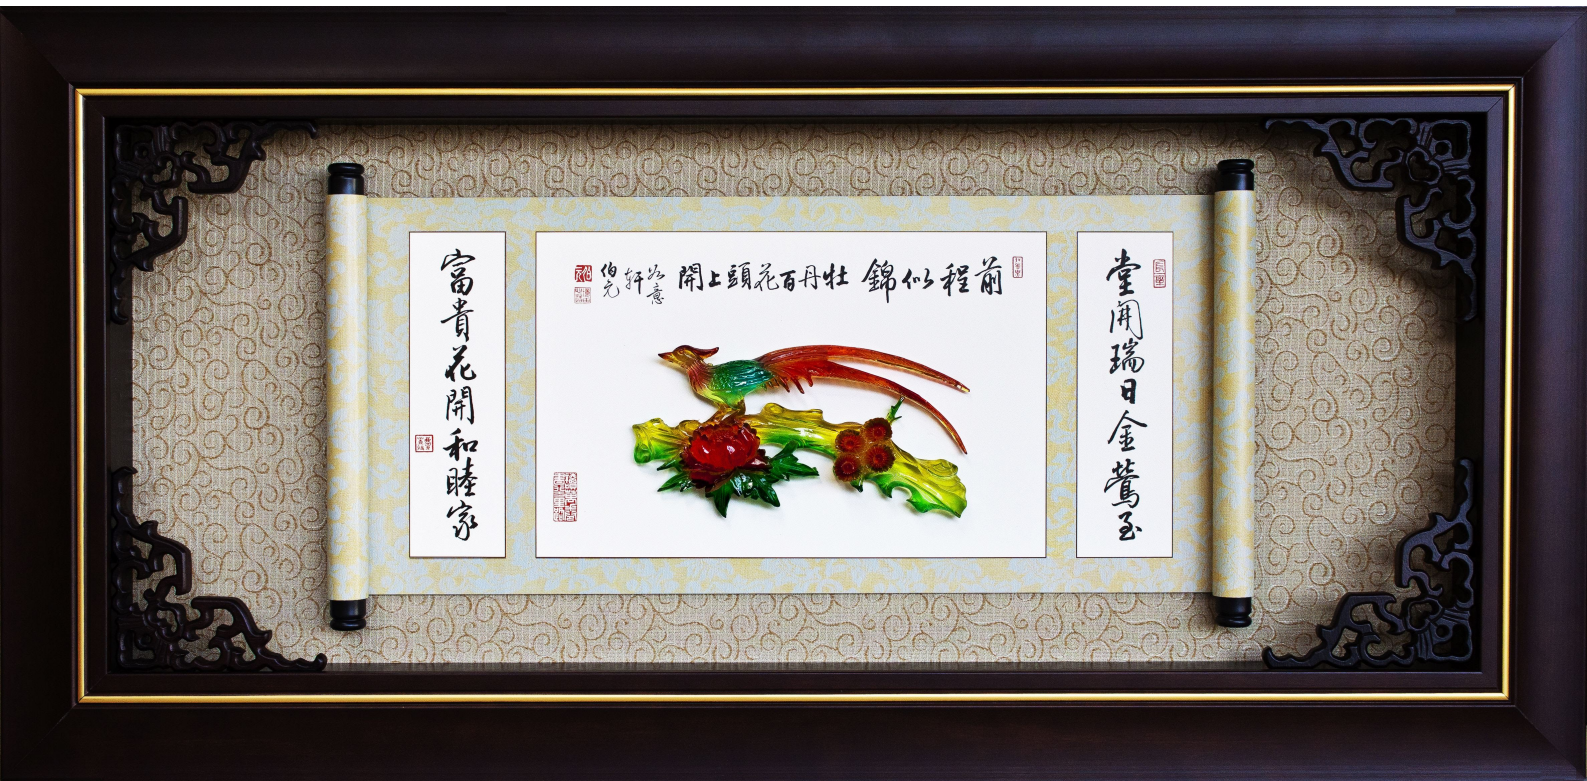 堂開瑞日金鶯至
前程似錦 牡丹百花頭上開
如意軒
伯元
富貴花開和睦家